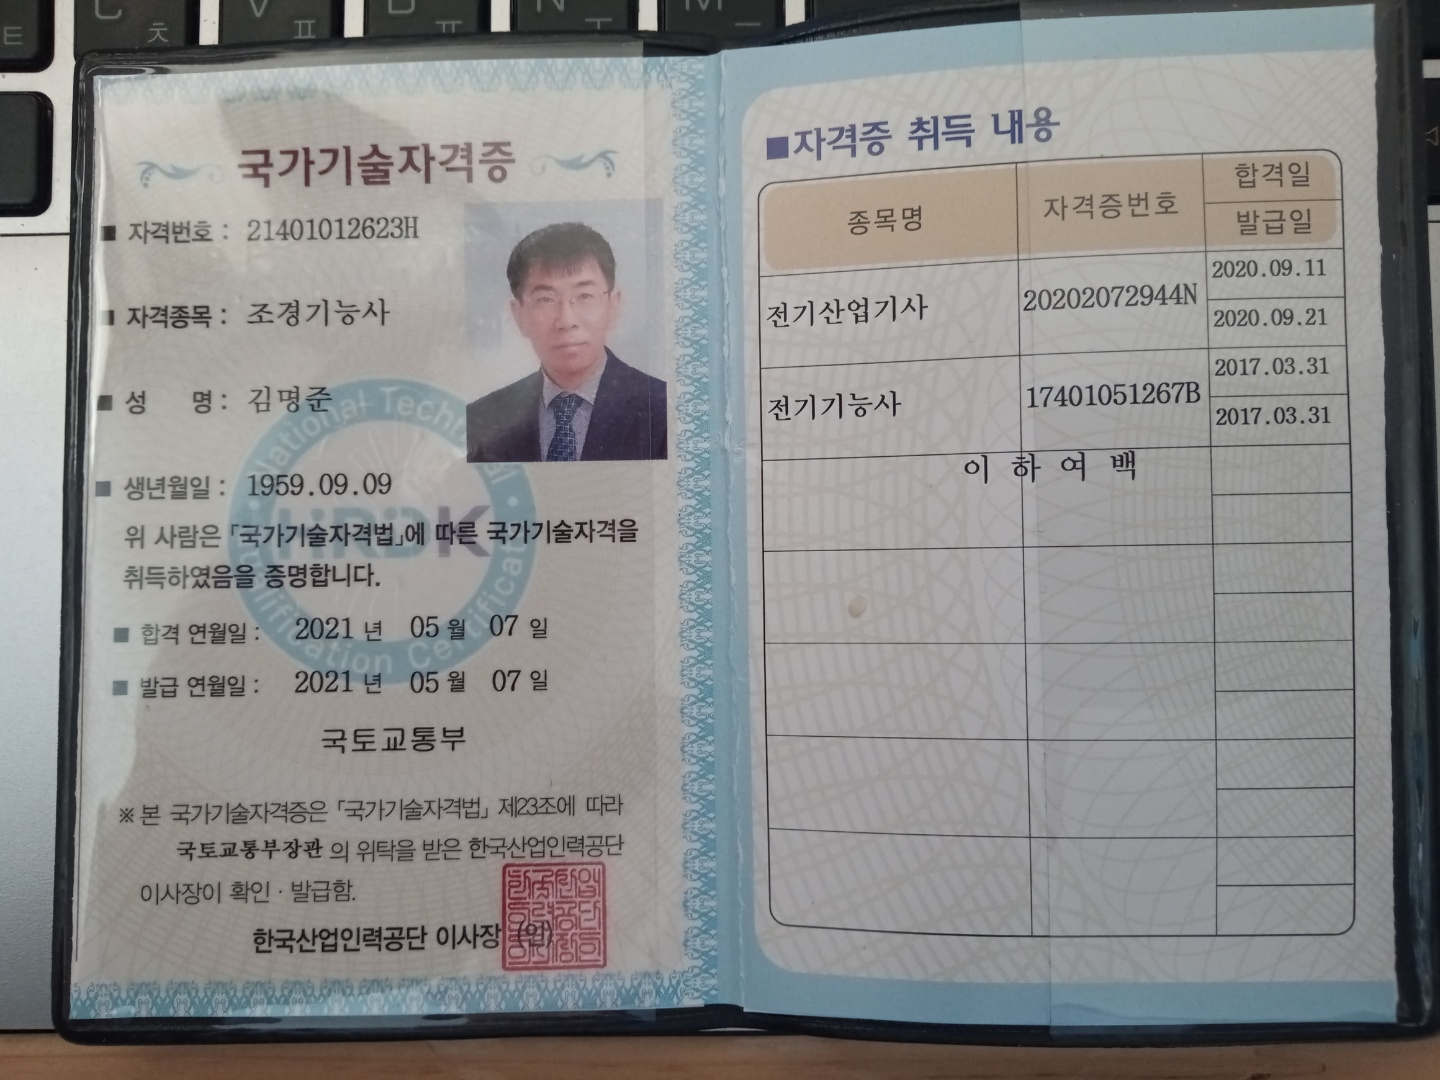 국가기술자격증
■ 자격번호 : 21401012623H
■ 자격종목 : 조경기능사
■ 성 명 : 김명준
■ 생년월일 : 1959.09.09
위 사람은 「국가기술자격법」에 따른 국가기술자격을
취득하였음을 증명합니다.
■ 합격 연월일 : 2021 년 05 월 07 일
■ 발급 연월일 : 2021 년 05 월 07 일
국토교통부
※ 본 국가기술자격증은 「국가기술자격법」 제23조에 따라
국토교통부장관 의 위탁을 받은 한국산업인력공단
이사장이 확인 · 발급함.
한국산업인력공단 이사장 (인)
HRDK
■자격증 취득 내용
종목명 자격증번호 합격일
발급일
전기산업기사 20202072944N 2020.09.11
2020.09.21
전기기능사 17401051267B 2017.03.31
2017.03.31
이 하 여 백